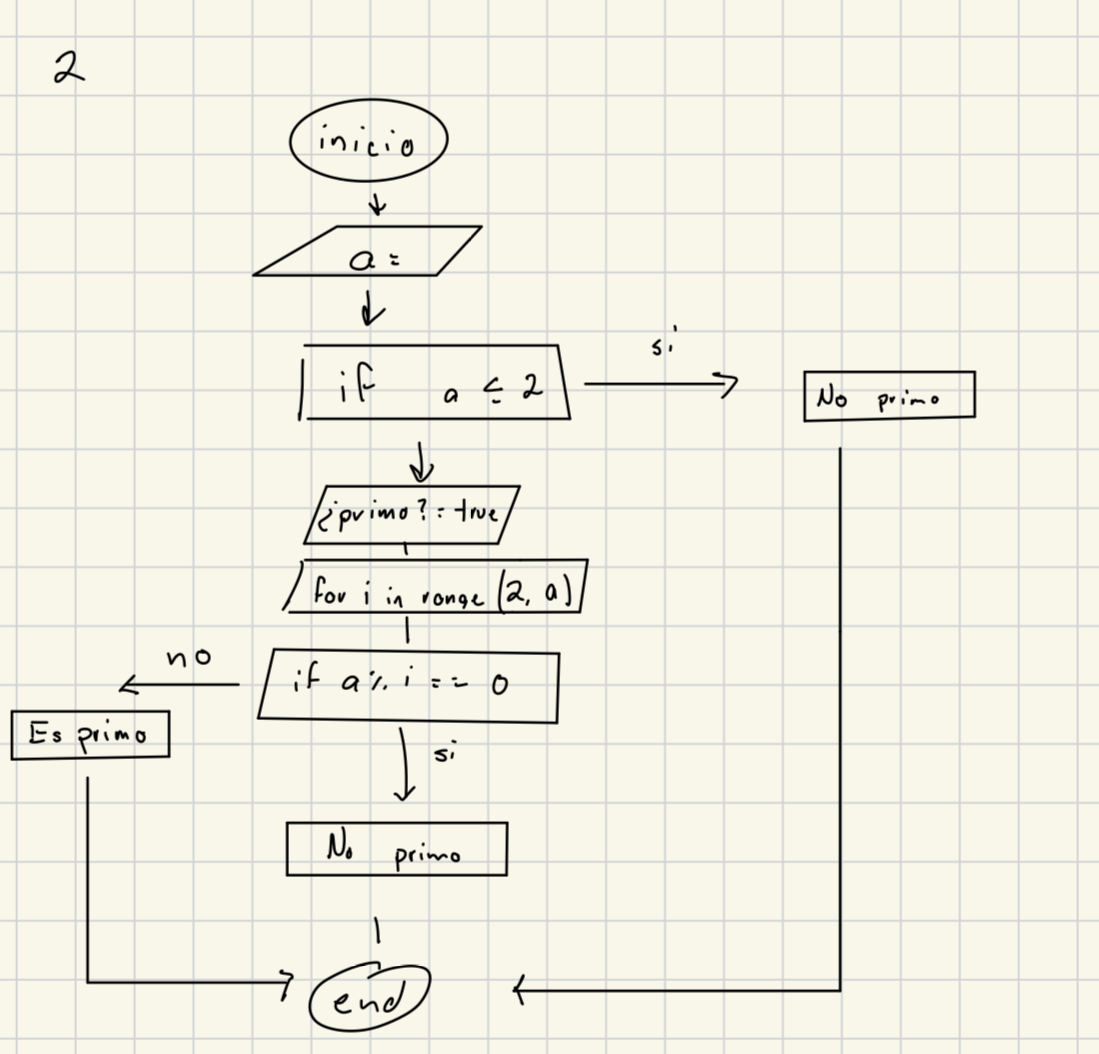 2
inicio
a =
if a ≤ 2
si
No primo
¿primo? = true
for i in range (2, a)
if a % i == 0
no
Es primo
si
No primo
end